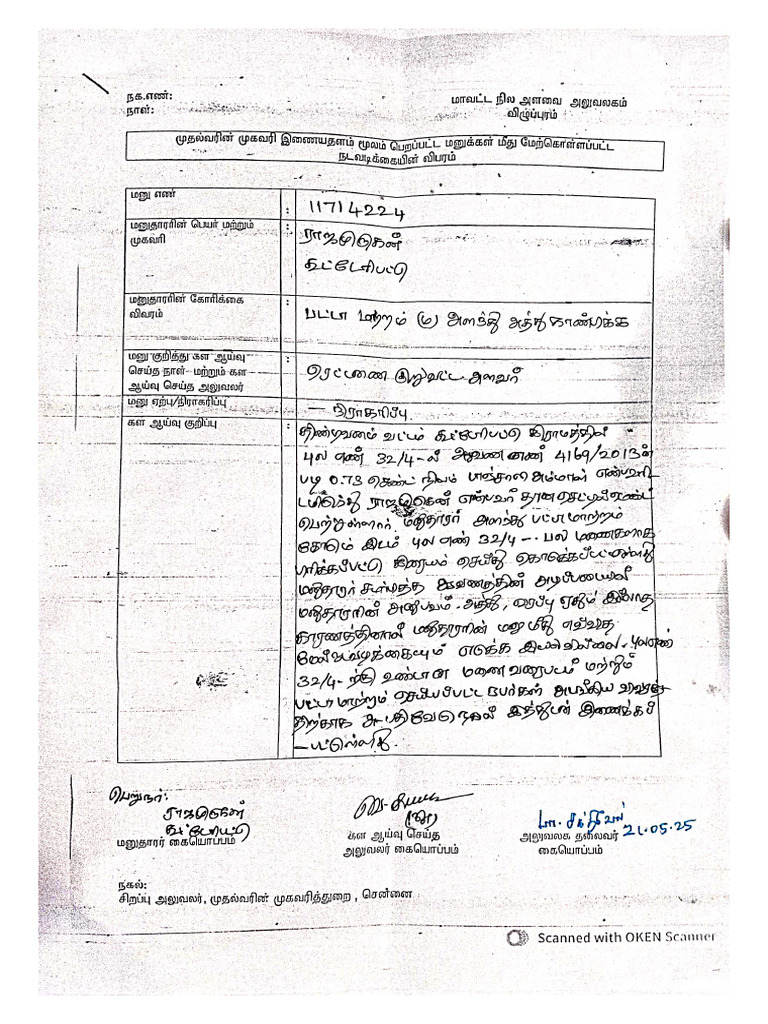 நக.எண்:
நாள்:
மாவட்ட நில அளவை அலுவலகம்
விழுப்புரம்
முதல்வரின் முகவரி இணையதளம் மூலம் பெறப்பட்ட மனுக்கள் மீது மேற்கொள்ளப்பட்ட
நடவடிக்கையின் விபரம்
மனு எண் : 11714224
மனுதாரரின் பெயர் மற்றும் : ராஜமுருகன்
முகவரி
கூட்டேரிபட்டு
மனுதாரரின் கோரிக்கை : பட்டா மாற்றம் (ம) அளந்து அத்து காண்பிக்க
விவரம்
மனு குறித்து கள ஆய்வு :
செய்த நாள் மற்றும் கள ரெட்டணை குறுவட்ட அளவர்
ஆய்வு செய்த அலுவலர்
மனு ஏற்பு/நிராகரிப்பு – நிராகரிப்பு
கள ஆய்வு குறிப்பு : திண்டிவனம் வட்டம் கூட்டேரிபட்டு கிராமத்தில்
புல எண் 32/4-ல் ஆவண எண் 4169/2013ன்
படி 0.73 செண்ட் நிலம் பாஞ்சாலி அம்மாள் என்பவரி
டமிருந்து என்பவர் தான செட்டில்மெண்ட்
பெற்றுள்ளார் மனுதாரர் அளந்து பட்டா மாற்றம்
கோரும் இடம் புல எண் 32/4 -- பல மனைகளாக
பிரிக்கப்பட்டு கிரையம் செய்து கொடுக்கப்பட்டுள்ளது
மனுதாரர் சமர்பித்த ஆவணத்தின் அடிப்படையில்
மனுதாரரின் அனுபவம், அத்து, வரப்பு ஏதும் இல்லாத
காரணத்தினால் மனுதாரரின் மனு மீது எவ்வித
மேல் நடவடிக்கையும் எடுக்க இயலவில்லை. புல எண்
32/4-ற்கு உண்டான மனை வரைபடம் மற்றும்
பட்டா மாற்றம் செய்யப்பட்ட நபர்கள் அடங்கிய
அ பதிவேடு நகல் இத்துடன் இணைக்கப்
– பட்டுள்ளது.
பெறுநர்:
ராஜமுருகன்
கூட்டேரிபட்டு
மனுதாரர் கையொப்பம்
கள ஆய்வு செய்த
அலுவலர் கையொப்பம்
21.05.25
அலுவலக தலைவர்
கையொப்பம்
நகல்:
சிறப்பு அலுவலர், முதல்வரின் முகவரித்துறை , சென்னை
Scanned with OKEN Scanner